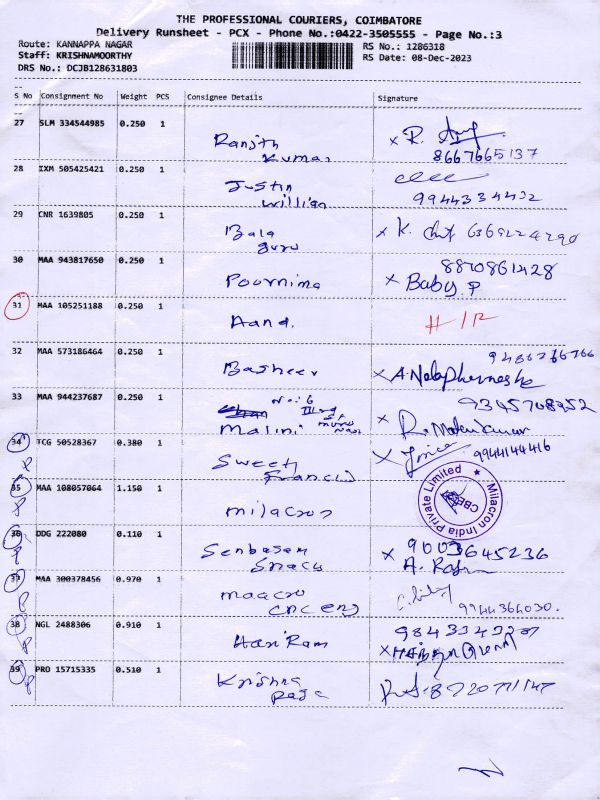 THE PROFESSIONAL COURIERS, COIMBATORE
Delivery Runsheet - PCX - Phone No.:0422-3505555 - Page No.:3
Route: KANNAPPA NAGAR
RS No.: 1286318
Staff: KRISHNAMOORTHY
RS Date: 08-Dec-2023
DRS No.: DCJB128631803
S No Consignment No Weight PCS Consignee Details Signature
27 SLM 334544985 0.250 1 Ranjith Kumar x R.
8667665137
28 IXM 505425421 0.250 1 Justin William
9944334432
29 CNR 1639805 0.250 1 Bala guru x K.
30 MAA 943817650 0.250 1 Poornima 8870861428
x Baby P
31 MAA 105251188 0.250 1 Aand.
32 MAA 573186464 0.250 1 Basheer
33 MAA 944237687 0.250 1 No: 6
Malini
9345708952
x R.
34 TCG 50528367 0.380 1 Sweety Francis x
9944144416
35 MAA 108057064 1.150 1 milacron
Milacron India Private Limited
CBE
36 DDG 222080 0.110 1 Senbagam Snacks x 9003645236
A.
37 MAA 300378456 0.970 1 maacro cnc eng
9944364030.
38 NGL 2488306 0.910 1 Hari Ram
39 PRO 15715335 0.510 1 Krishna Raja